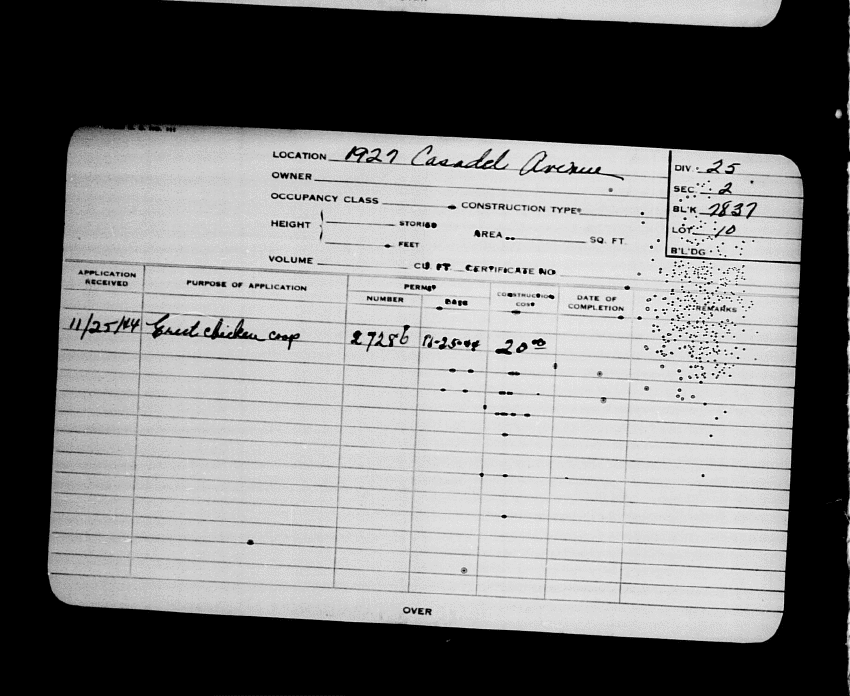 LOCATION 1927 Casadel Avenue
OWNER
OCCUPANCY CLASS CONSTRUCTION TYPE
HEIGHT STORIES AREA SQ. FT.
FEET
VOLUME CU. FT. CERTIFICATE NO
DIV. 25
SEC. 2
BL'K 7837
LOT 10
B'L'DG
APPLICATION RECEIVED PURPOSE OF APPLICATION PERMIT CONSTRUCTION COST DATE OF COMPLETION REMARKS
NUMBER DATE
11/25/44 Erect chicken coop 27286 11-25-44 20 00
OVER